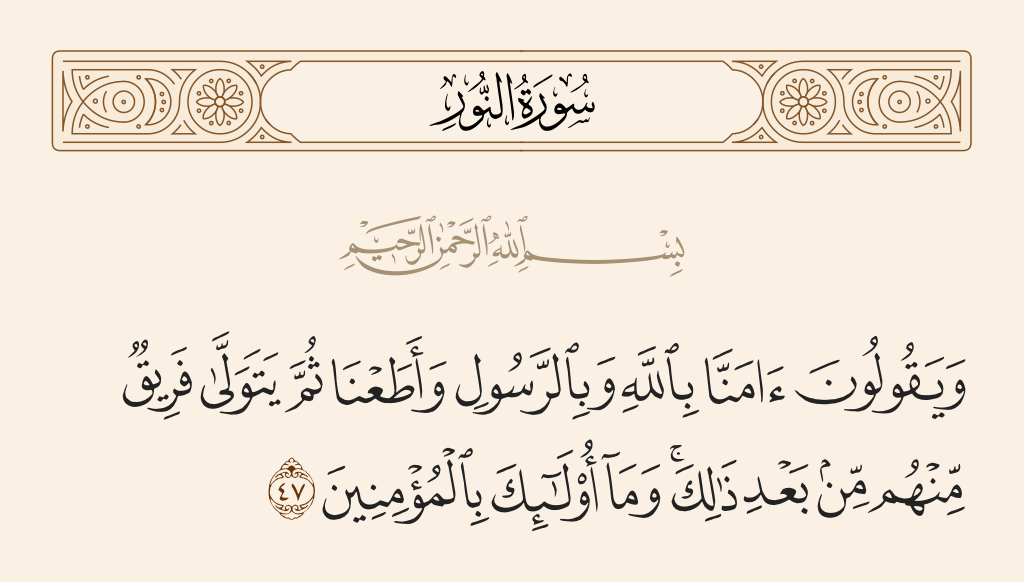 سُورَةُ النُّورِ
بِسْمِ ٱللَّهِ ٱلرَّحْمَٰنِ ٱلرَّحِيمِ
وَيَقُولُونَ ءَامَنَّا بِٱللَّهِ وَبِٱلرَّسُولِ وَأَطَعْنَا ثُمَّ يَتَوَلَّىٰ فَرِيقٌ
مِّنْهُم مِّنۢ بَعْدِ ذَٰلِكَ ۚ وَمَآ أُو۟لَٰٓئِكَ بِٱلْمُؤْمِنِينَ ٤٧